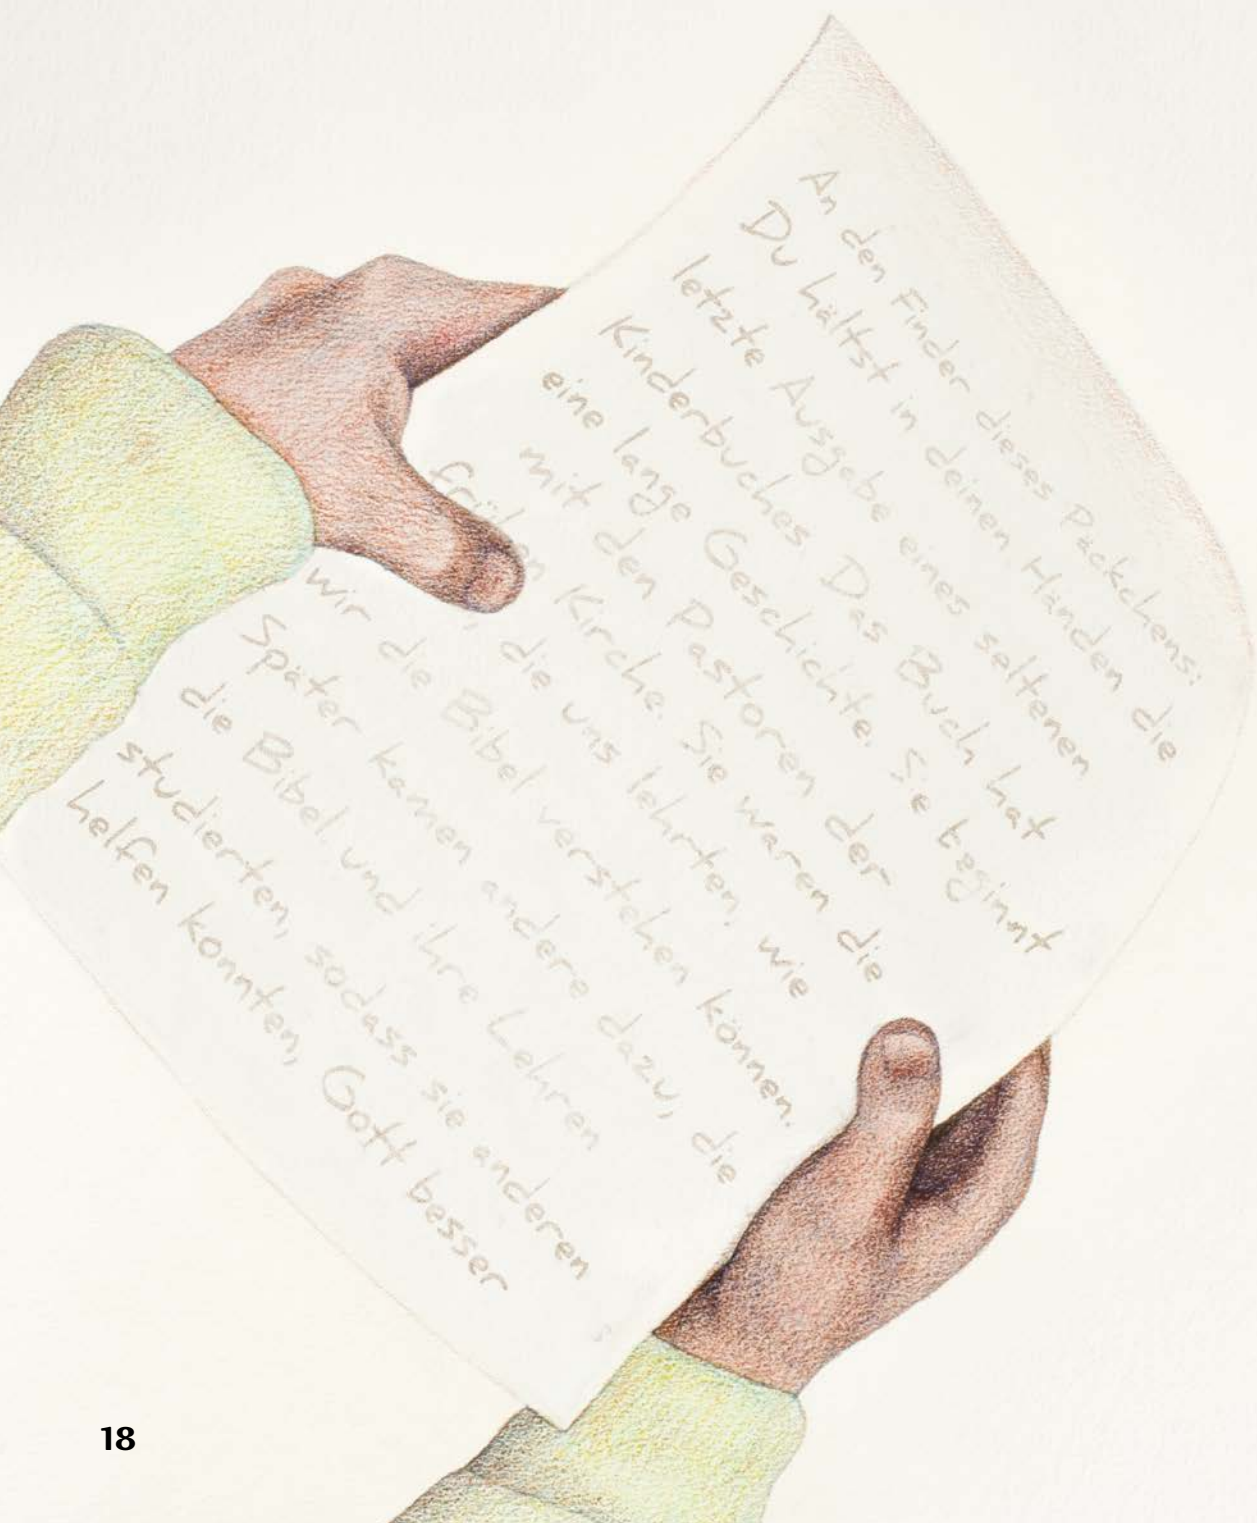 An den Finder dieses Päckchens:
Du hältst in deinen Händen die
letzte Ausgabe eines seltenen
Kinderbuches. Das Buch hat
eine lange Geschichte. Sie beginnt
mit den Pastoren der
Kirche. Sie waren die
die uns lehrten, wie
wir die Bibel verstehen können.
Später kamen andere dazu, die
die Bibel und ihre Lehren
studierten, sodass sie anderen
helfen konnten, Gott besser
18